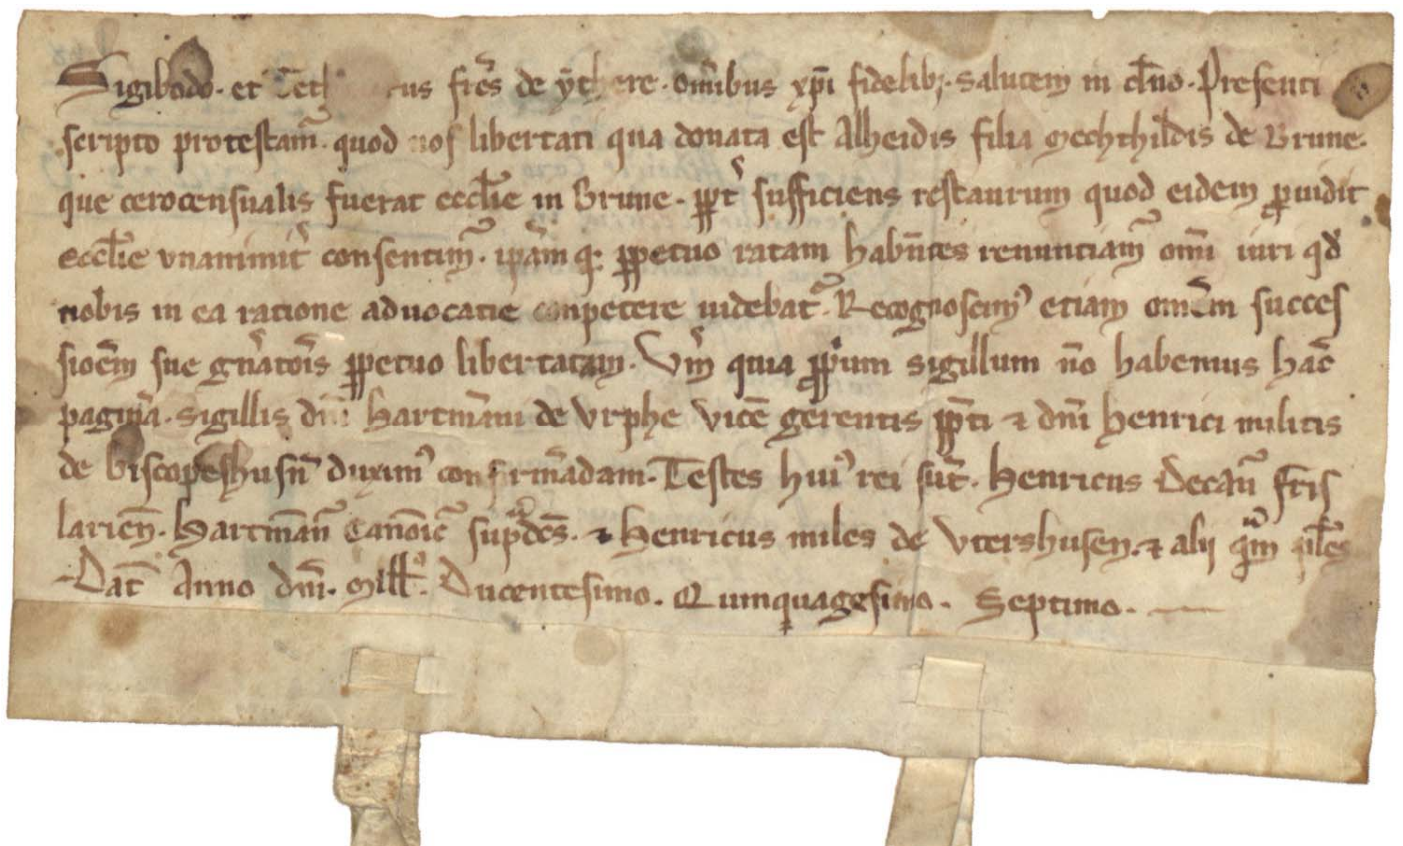 Sigibodo. et fr̄es de ẏthere. om̄ibus xp̄i fidelibꝫ. salutem in d̄no. Presenti
scripto protestamꝰ. quod nos libertati qua donata est Alheidis filia Mechthildis de Brune.
que cerocensualis fuerat ecclīe in Brune. ꝓpt̄ sufficiens restaurum quod eidem ꝓuidit
ecclīe vnanimit̄ consentimꝰ. ip̄am qꝫ ꝑpetuo ratam habn̄tes renunciamꝰ om̄i iuri qd̄
nobis in ea ratione aduocatie conpetere uidebatᷣ. Recognoscimꝰ etiam om̄em succes
sioēm sue gn̄atōis ꝑpetuo libertatam. Vm̄ quia ꝓpium sigillum nō habemus hāc
paginā. sigillis dn̄i Hartmāni de Vrphe vicē gerentis pp̄ti ⁊ dn̄i Henrici militis
de Biscopeshusn̄ duximꝰ confirmādam. Testes huiꝰ rei sūt. Henricus Decanꝰ Fris
larien̄. Hartmānꝰ Canōicꝰ sup̄dc̄s. ⁊ Henricus miles de Vtershusen. ⁊ alij qᵃm pl̄es
Dat̄ Anno dn̄i. Mill̄o. Ducentesimo. Quinquagesimo. Septimo.